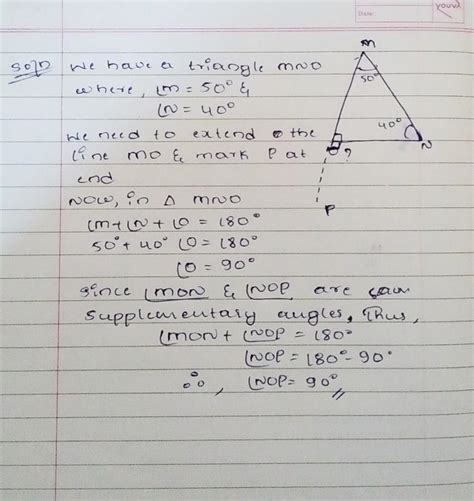 Date
YOUVA
Soln We have a triangle MNO
where, ∠M = 50° &
∠N = 40°
We need to extend the
line MO & mark P at
end
NOW, in Δ MNO
∠M+∠N+∠O = 180°
50°+ 40° ∠O = 180°
∠O = 90°
Since ∠MON & ∠NOP are
supplementary angles, Thus,
∠MON + ∠NOP = 180°
∠NOP = 180° - 90°
∴, ∠NOP = 90°
M
50°
40°
O ?
N
P